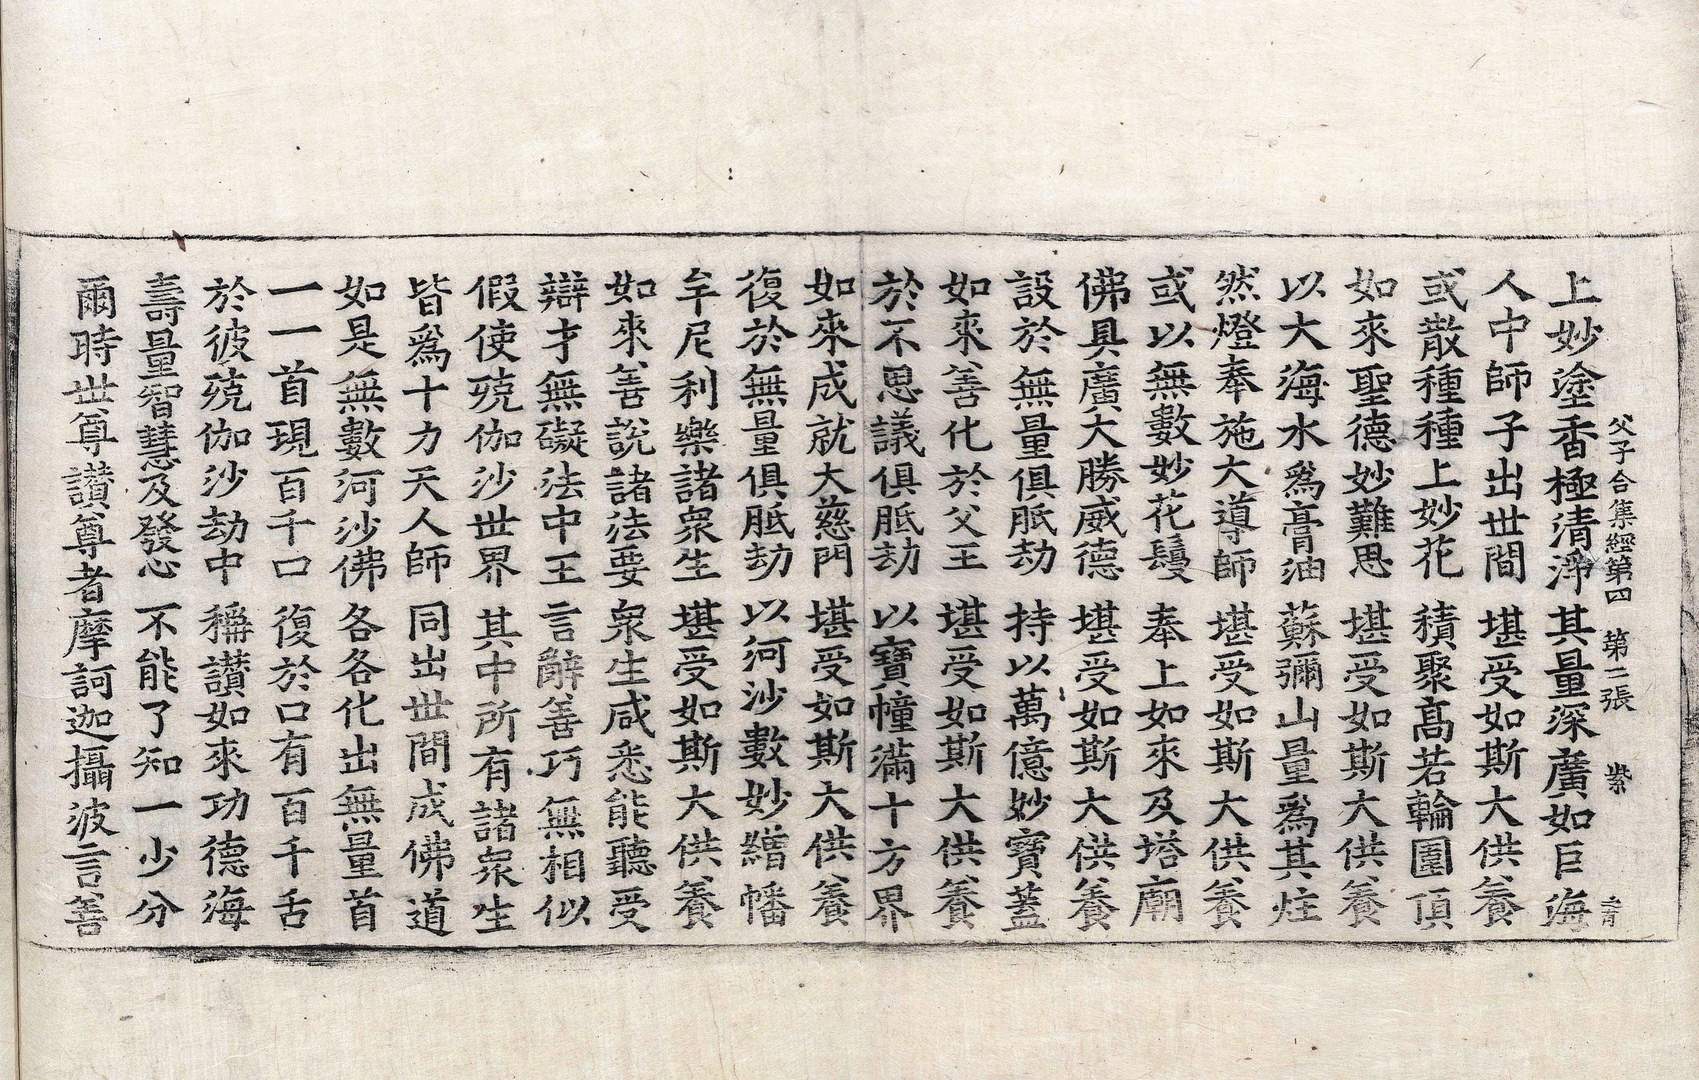 父子合集經第四　第二張　紫
上妙塗香極清淨　其量深廣如巨海
人中師子出世間　堪受如斯大供養
或散種種上妙花　積聚高若輪圍頂
如來聖德妙難思　堪受如斯大供養
以大海水爲膏油　蘇彌山量爲其炷
然燈奉施大導師　堪受如斯大供養
或以無數妙花鬘　奉上如來及塔廟
佛具廣大勝威德　堪受如斯大供養
設於無量俱胝劫　持以萬億妙寶蓋
如來善化於父王　堪受如斯大供養
於不思議俱胝劫　以寶幢滿十方界
如來成就大慈門　堪受如斯大供養
復於無量俱胝劫　以河沙數妙繒幡
牟尼利樂諸衆生　堪受如斯大供養
如來善說諸法要　衆生咸悉能聽受
辯才無礙法中王　言辭善巧無相似
假使殑伽沙世界　其中所有諸衆生
皆爲十力天人師　同出世間成佛道
如是無數河沙佛　各各化出無量首
一一首現百千口　復於口有百千舌
於彼殑伽沙劫中　稱讚如來功德海
壽量智慧及發心　不能了知一少分
爾時世尊讚尊者摩訶迦攝波言善